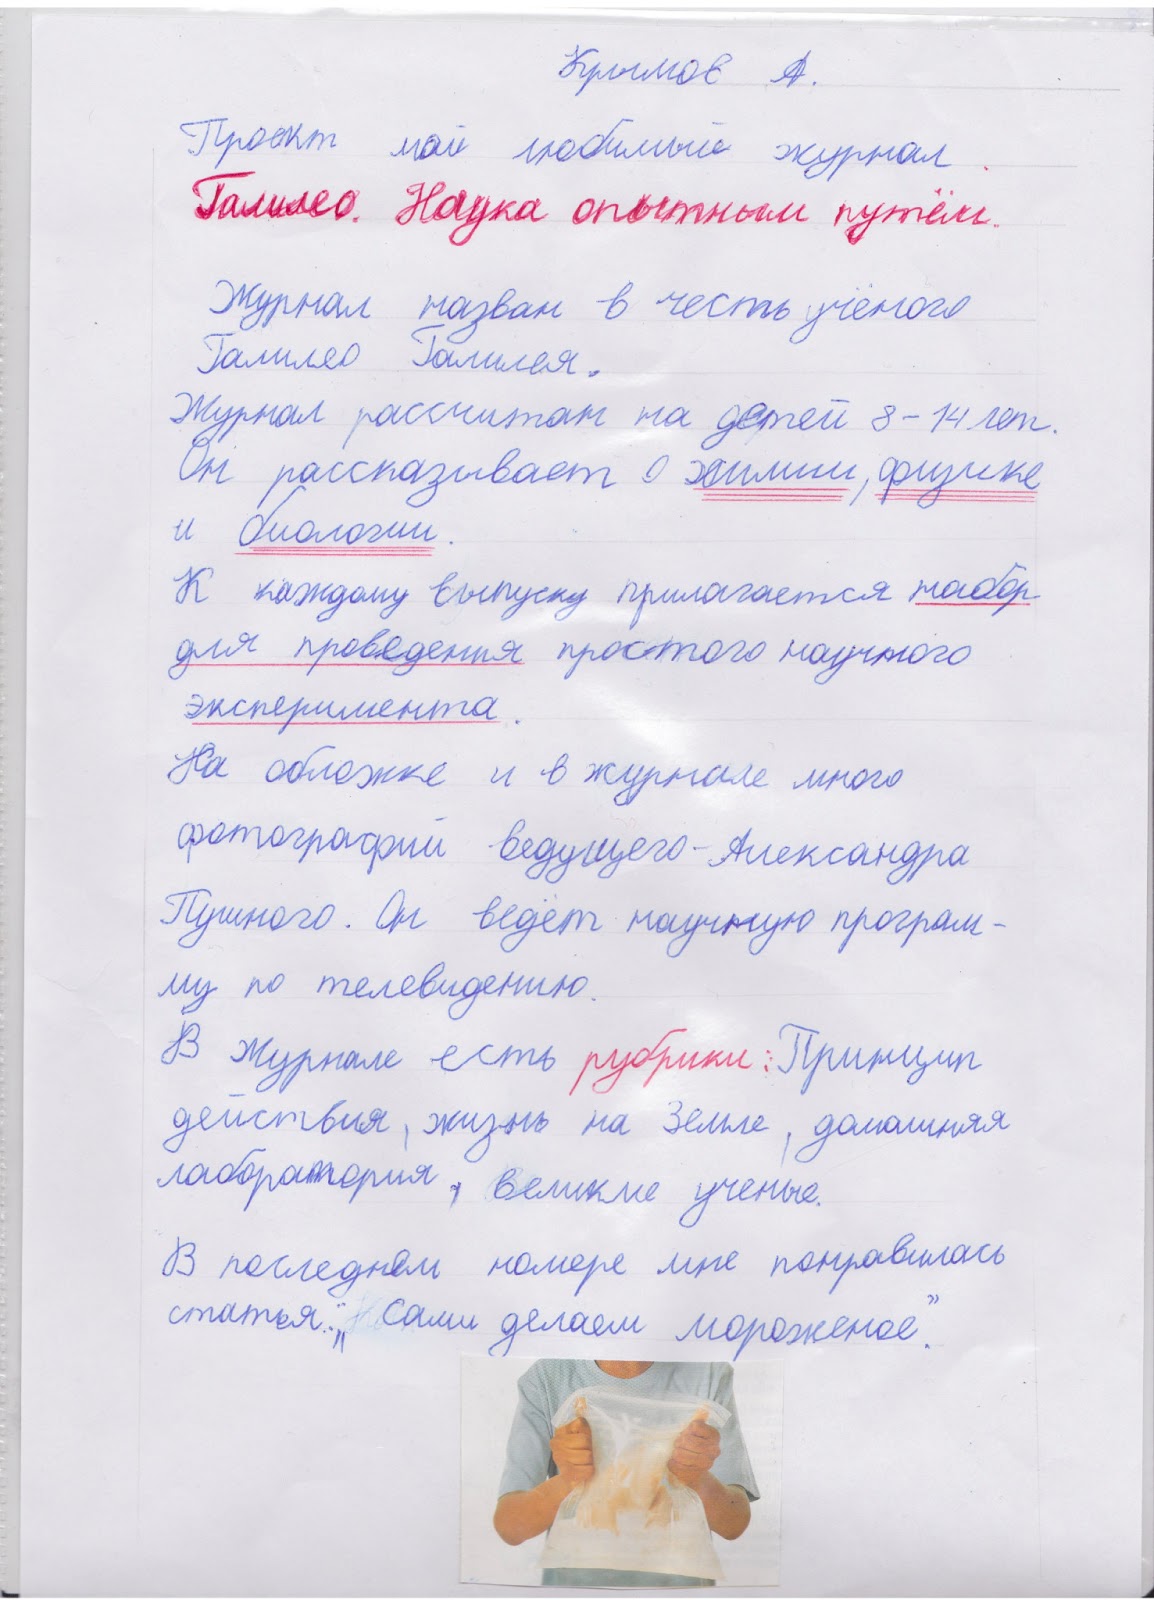 Крымов А.
Проект мой любимый журнал.
Галилео. Наука опытным путём.
Журнал назван в честь учёного
Галилео Галилея.
Журнал рассчитан на детей 8-14 лет.
Он рассказывает о химии, физике
и биологии.
К каждому выпуску прилагается набор
для проведения простого научного
эксперимента.
На обложке и в журнале много
фотографий ведущего-Александра
Пушного. Он ведёт научную програм-
му по телевидению.
В журнале есть рубрики: Принцип
действия, жизнь на Земле, домашняя
лаборатория, великие ученые.
В последнем номере мне понравилась
статья: „Сами делаем мороженое".